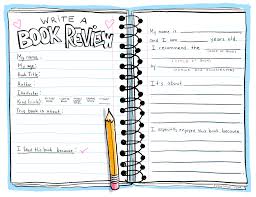 WRITE A
BOOK REVIEW
My name:
My age:
Book Title:
Author:
Illustrator:
This book is about:
I liked this book because
My name is
and I am years old.
I recommend the
by
It's about
I especially enjoyed this book because